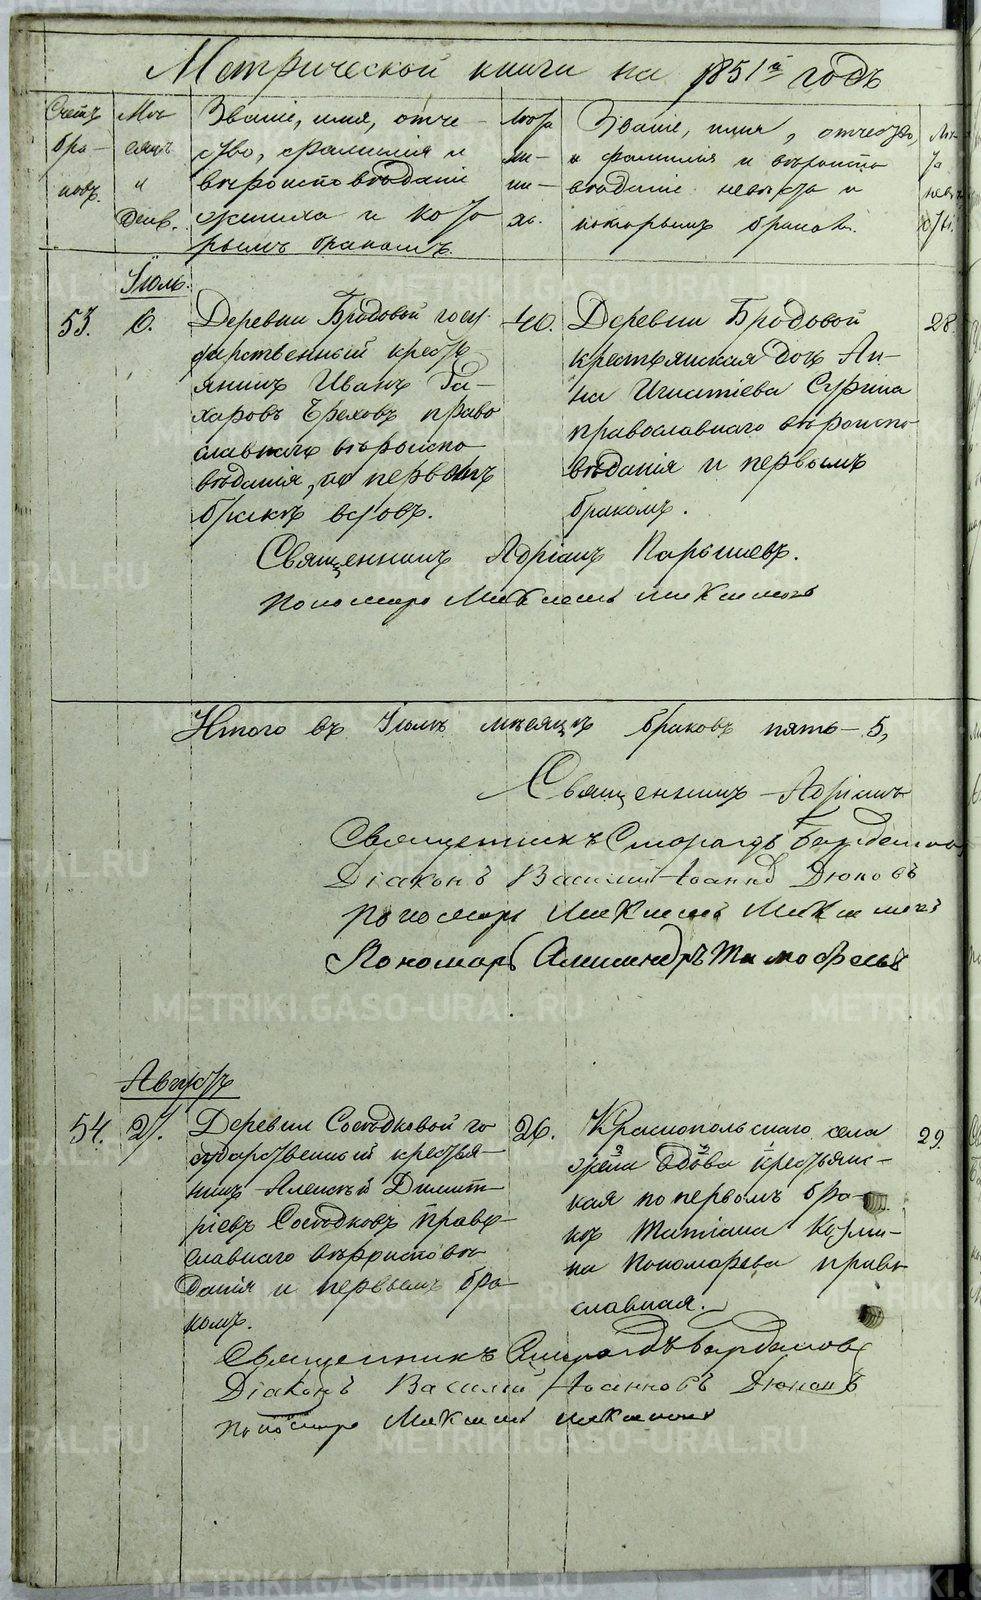 Метрической книги на 1851й годъ
Счетъ
бра-
ковъ.
Мѣ
сяцъ
и
День.
Званіе, имя, отче-
ство, фамилія и
вѣроисповѣданіе
жениха и кото
рымъ бракомъ.
Лѣта
же-
ни-
ха.
Званіе, имя, отчество,
и фамилія и вѣроиспо
вѣданіе невѣста и
которымъ бракомъ.
Лѣ-
та
невѣ
сты.
Іюль.
53.
6.
Деревни Бродовой госу
дарственный кресть
янинъ Иванъ За-
харовъ Ереховъ право
славнаго вѣроиспо
вѣданія, по первомъ
бракѣ вдовъ.
40.
Деревни Бродовой
крестьянская дочь Ан-
на Игнатіева Сурина
православнаго вѣроиспо
вѣданія и первымъ
бракомъ.
28
Священникъ Адріанъ
Пономарь
Итого въ Іюлѣ мѣсяцѣ браковъ пять-5,
Священникъ Адріанъ
Священникъ Смарагдъ
Діаконъ Василій Іоанновъ Дюковъ
Пономарь
Пономарь Александръ Тимофеевъ
Августъ
54.
27.
Деревни Солодковой го
сударственный крестья-
нинъ Алексѣй Димит-
ріевъ Солодковъ право-
славнаго вѣроисповѣ
данія и первымъ бра-
комъ.
26.
Краснопольскаго села
жена вдова крестьянс-
кая по первомъ бра-
кѣ Татіана Кузми-
на Пономарева право-
славная.
29.
Священникъ Смарагдъ
Діаконъ Василій Іоанновъ Дюковъ
Пономарь
METRIKI.GASO-URAL.RU